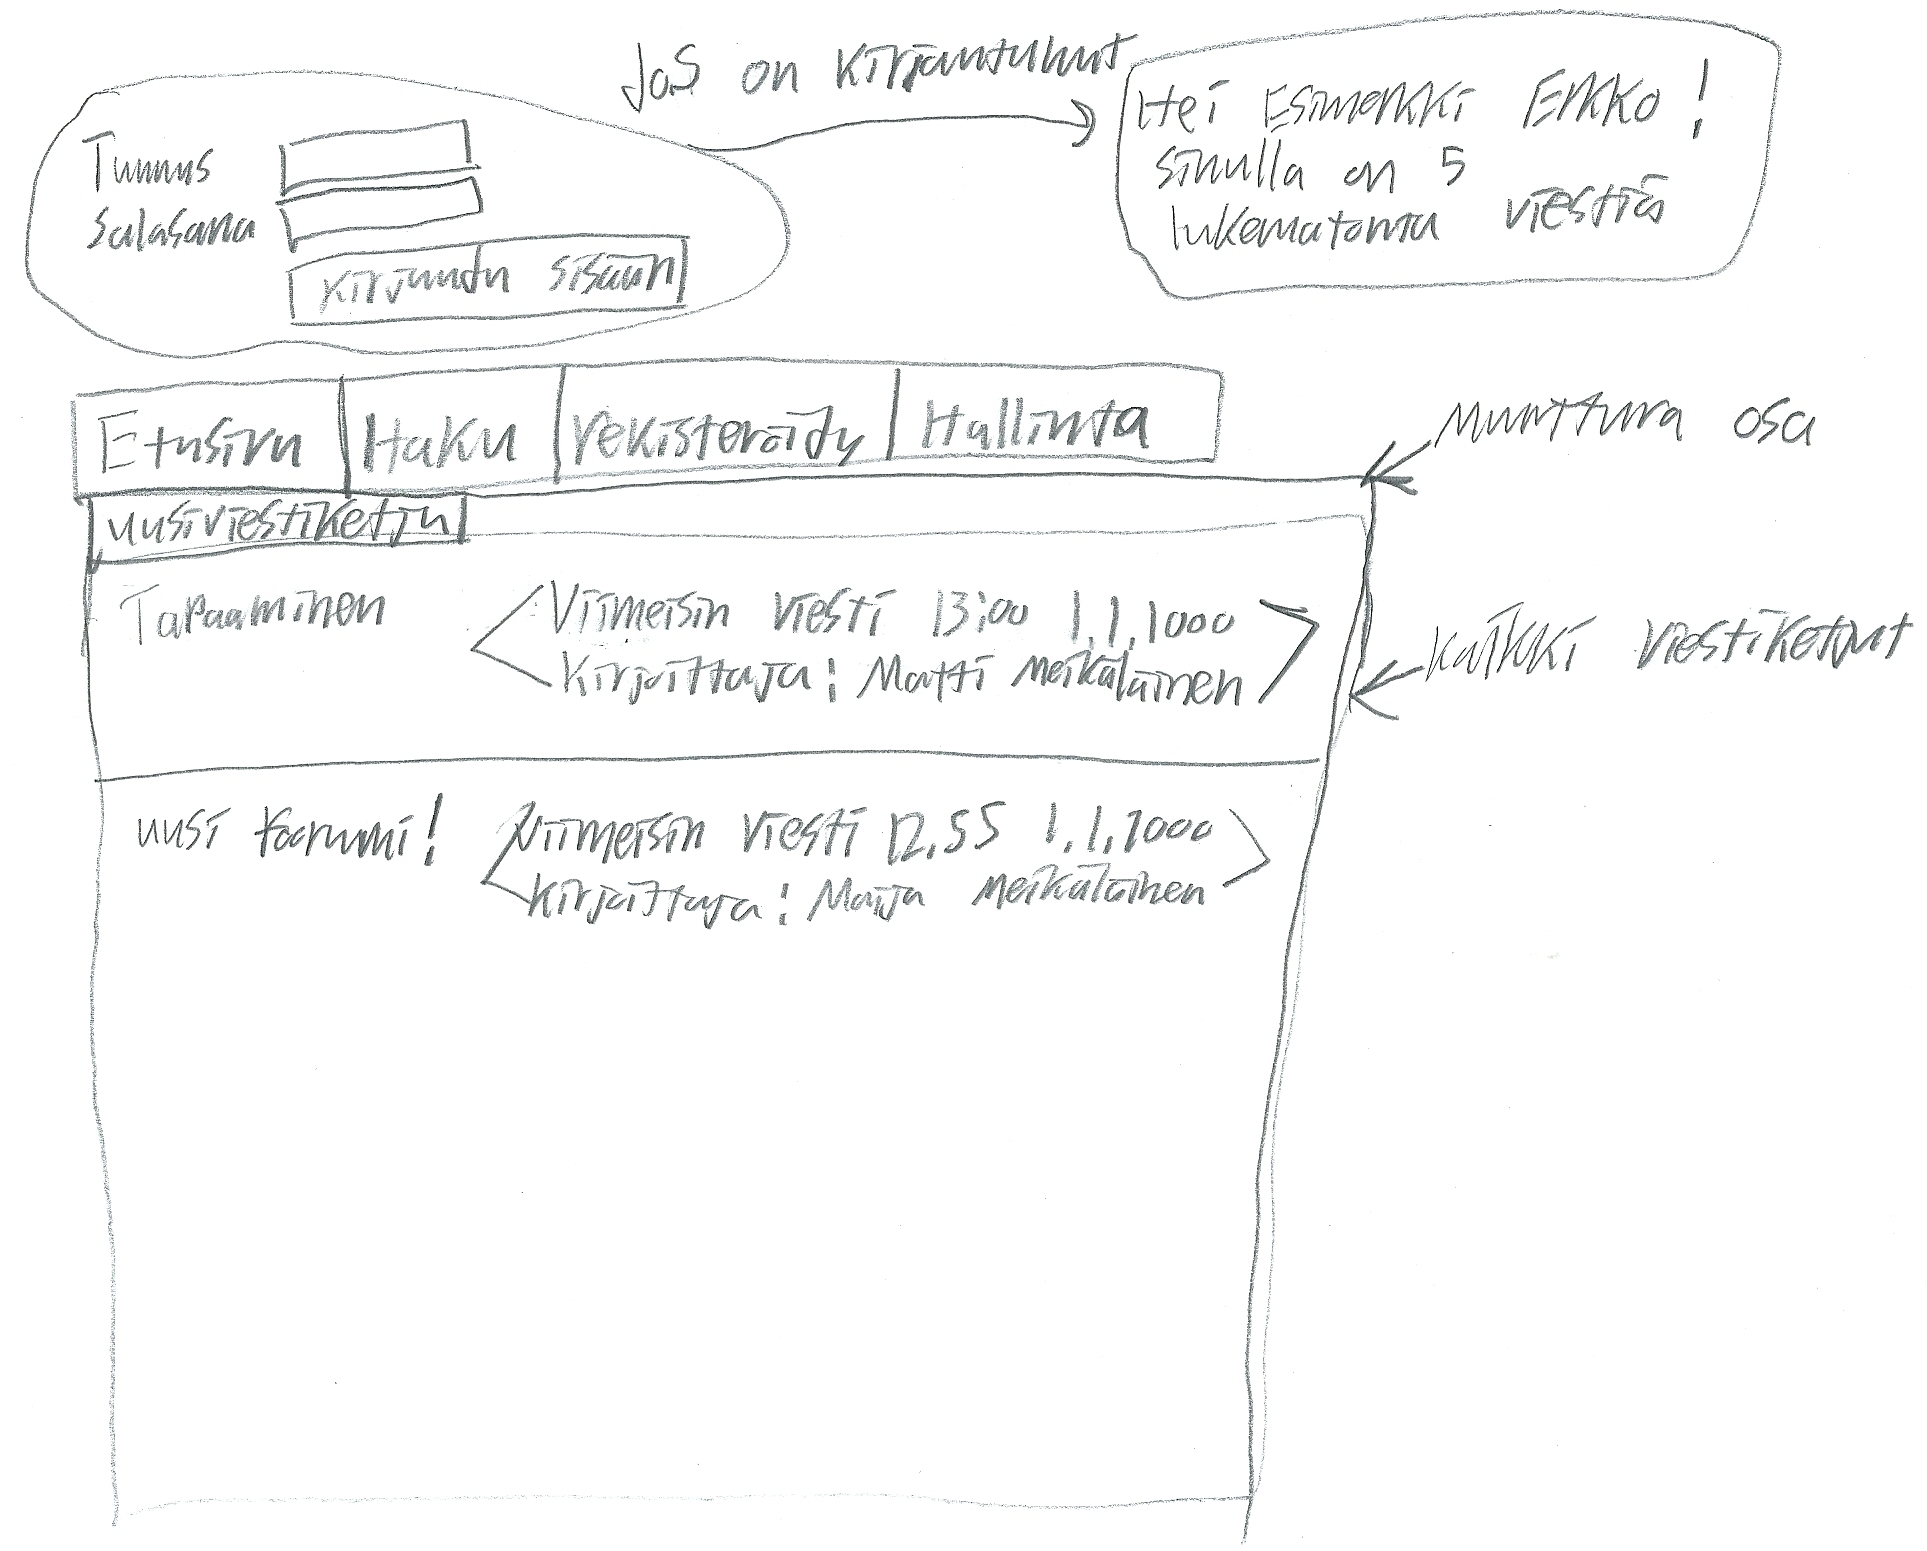 Jos on kirjautunut
Tunnus
Salasana
Kirjaudu sisään
Hei Esimerkki Erkko!
sinulla on 5
lukematonta viestiä
Etusivu Haku rekisteröidy Hallinta
muuttuva osa
uusi viestiketju
Tapaaminen
Viimeisin viesti 13:00 1.1.1000
Kirjoittaja: Matti meikäläinen
kaikki viestiketjut
uusi foorumi!
Viimeisin viesti 12.55 1.1.1000
Kirjoittaja: Maija meikäläinen